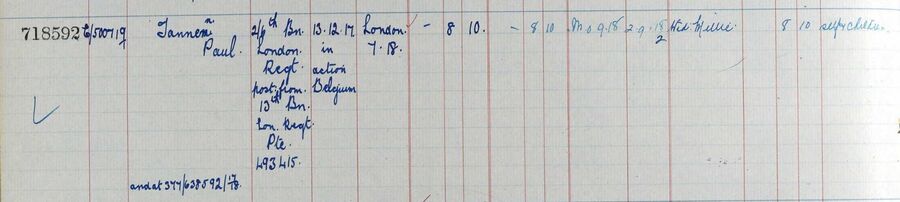 718592 E/500719 Tannen 2/4th Bn. 13.12.17 London. - 8 10. - 8 10 M 0 9.18 2.9.18 Wid. Millie. 8 10 self & children.
Paul. London. in 7.18.
Regt. action
post. from. Belgium
13th Bn.
Lon. Regt.
Pte.
493415.
and at 377/638592/17/18.